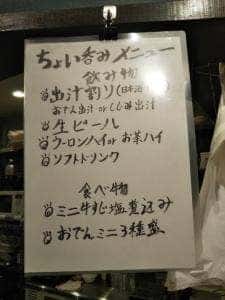 ちょい呑みメニュー
飲み物
出汁割り(日本酒)
おでん出汁 or しじみ出汁
生ビール
ウーロンハイ or お茶ハイ
ソフトドリンク
食べ物
ミニ牛すじ塩煮込み
おでんミニ3種盛